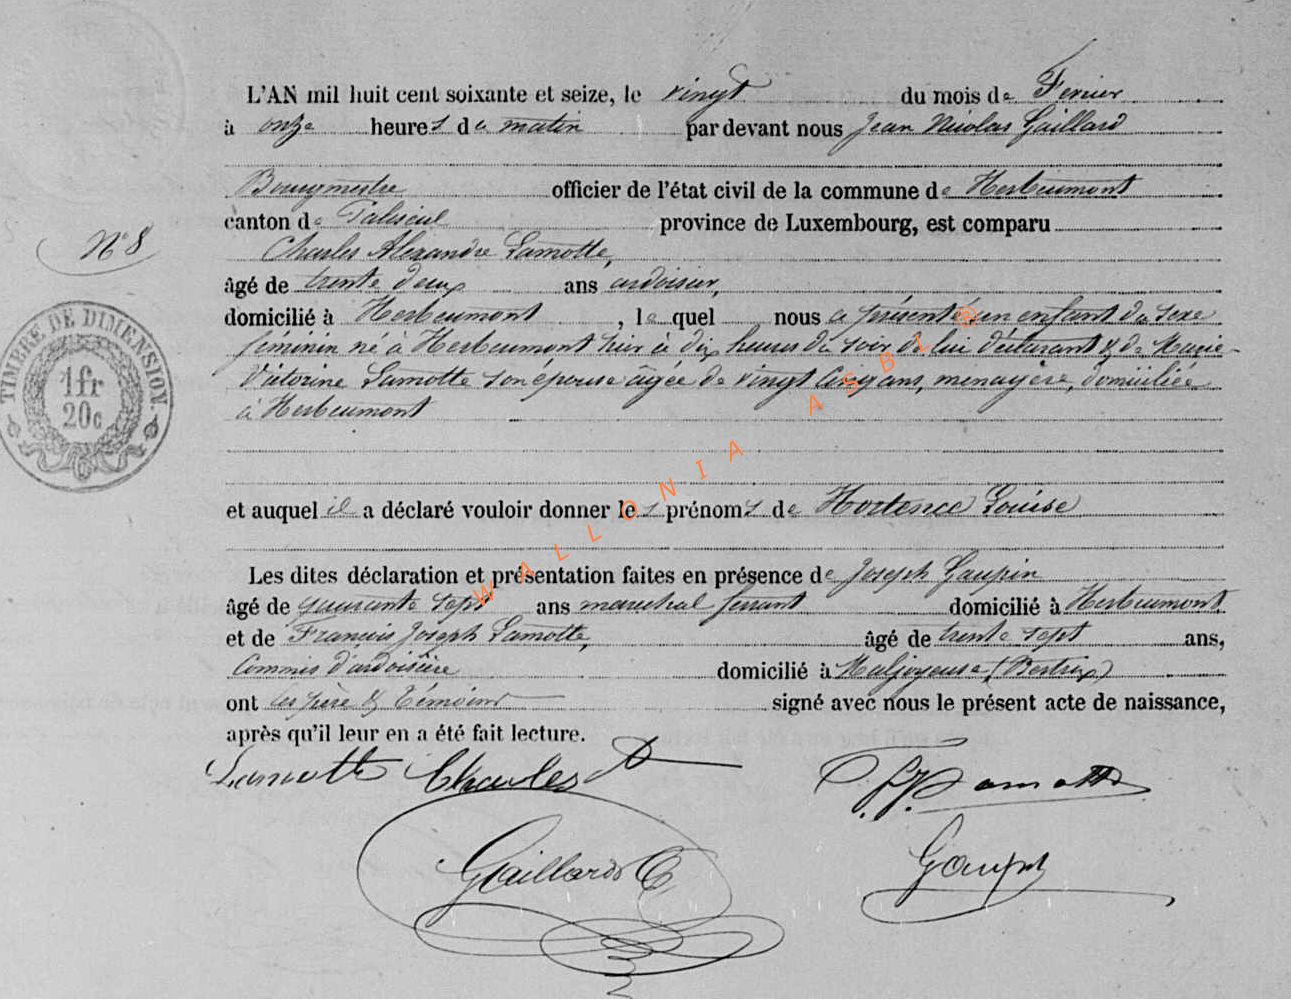 L'AN mil huit cent soixante et seize, le vingt du mois de Fevrier
à onze heures du matin par devant nous Jean Nicolas Gaillard
Bourgmestre officier de l'état civil de la commune de Herbeumont
N° 8
canton de Paliseul province de Luxembourg, est comparu
Charles Alexandre Lamotte,
âgé de trente deux ans ardoisier,
domicilié à Herbeumont, le quel nous a présenté un enfant du sexe
féminin né à Herbeumont hier à dix heures du soir de lui déclarant & de Marie-
Victorine Lamotte son épouse âgée de vingt cinq ans, menagère, domiciliée
à Herbeumont
TIMBRE DE DIMENSION.
1fr
20c
et auquel il a déclaré vouloir donner les prénoms de Hortence Louise
Les dites déclaration et présentation faites en présence de Joseph Gaupin
âgé de quarante sept ans marechal ferrant domicilié à Herbeumont
et de François Joseph Lamotte, âgé de trente sept ans,
Commis d'ardoisière domicilié à Maljoyeuse (Bertrix)
ont les père & témoins signé avec nous le présent acte de naissance,
après qu'il leur en a été fait lecture.
Lamotte Charles A
F. J. Lamotte
Gaillard
Gaupin
WALLONIA ASBL ®